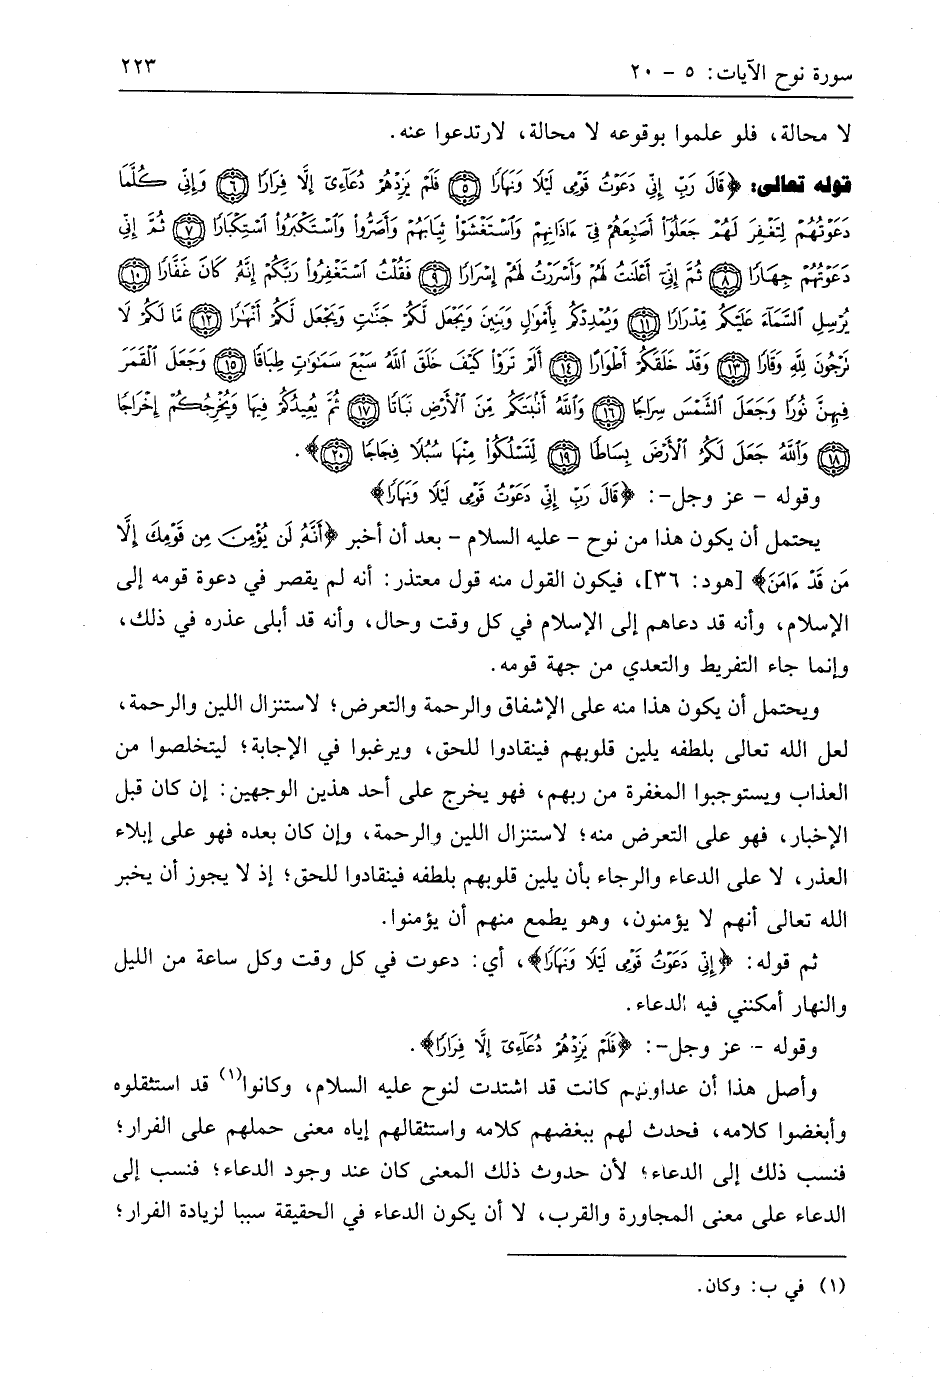 سورة نوح الآيات: ٥ - ٢٠
٢٢٣
لا محالة، فلو علموا بوقوعه لا محالة، لارتدعوا عنه.
قوله تعالى: ﴿قَالَ رَبِّ إِنِّي دَعَوْتُ قَوْمِي لَيْلًا وَنَهَارًا ﴿٥﴾ فَلَمْ يَزِدْهُمْ دُعَآءِىٓ إِلَّا فِرَارًا ﴿٦﴾ وَإِنِّي كُلَّمَا
دَعَوْتُهُمْ لِتَغْفِرَ لَهُمْ جَعَلُوٓا۟ أَصَٰبِعَهُمْ فِىٓ ءَاذَانِهِمْ وَٱسْتَغْشَوْا۟ ثِيَابَهُمْ وَأَصَرُّوا۟ وَٱسْتَكْبَرُوا۟ ٱسْتِكْبَارًا ﴿٧﴾ ثُمَّ إِنِّي
دَعَوْتُهُمْ جِهَارًا ﴿٨﴾ ثُمَّ إِنِّىٓ أَعْلَنتُ لَهُمْ وَأَسْرَرْتُ لَهُمْ إِسْرَارًا ﴿٩﴾ فَقُلْتُ ٱسْتَغْفِرُوا۟ رَبَّكُمْ إِنَّهُۥ كَانَ غَفَّارًا ﴿١٠﴾
يُرْسِلِ ٱلسَّمَآءَ عَلَيْكُم مِّدْرَارًا ﴿١١﴾ وَيُمْدِدْكُم بِأَمْوَٰلٍ وَبَنِينَ وَيَجْعَل لَّكُمْ جَنَّٰتٍ وَيَجْعَل لَّكُمْ أَنْهَٰرًا ﴿١٢﴾ مَّا لَكُمْ لَا
تَرْجُونَ لِلَّهِ وَقَارًا ﴿١٣﴾ وَقَدْ خَلَقَكُمْ أَطْوَارًا ﴿١٤﴾ أَلَمْ تَرَوْا۟ كَيْفَ خَلَقَ ٱللَّهُ سَبْعَ سَمَٰوَٰتٍ طِبَاقًا ﴿١٥﴾ وَجَعَلَ ٱلْقَمَرَ
فِيهِنَّ نُورًا وَجَعَلَ ٱلشَّمْسَ سِرَاجًا ﴿١٦﴾ وَٱللَّهُ أَنۢبَتَكُم مِّنَ ٱلْأَرْضِ نَبَاتًا ﴿١٧﴾ ثُمَّ يُعِيدُكُمْ فِيهَا وَيُخْرِجُكُمْ إِخْرَاجًا
﴿١٨﴾ وَٱللَّهُ جَعَلَ لَكُمُ ٱلْأَرْضَ بِسَاطًا ﴿١٩﴾ لِّتَسْلُكُوا۟ مِنْهَا سُبُلًا فِجَاجًا ﴿٢٠﴾﴾.
وقوله - عز وجل-: ﴿قَالَ رَبِّ إِنِّي دَعَوْتُ قَوْمِي لَيْلًا وَنَهَارًا﴾
يحتمل أن يكون هذا من نوح - عليه السلام - بعد أن أخبر ﴿أَنَّهُۥ لَن يُؤْمِنَ مِن قَوْمِكَ إِلَّا
مَن قَدْ ءَامَنَ﴾ [هود: ٣٦]، فيكون القول منه قول معتذر: أنه لم يقصر في دعوة قومه إلى
الإسلام، وأنه قد دعاهم إلى الإسلام في كل وقت وحال، وأنه قد أبلى عذره في ذلك،
وإنما جاء التفريط والتعدي من جهة قومه.
ويحتمل أن يكون هذا منه على الإشفاق والرحمة والتعرض؛ لاستنزال اللين والرحمة،
لعل الله تعالى بلطفه يلين قلوبهم فينقادوا للحق، ويرغبوا في الإجابة؛ ليتخلصوا من
العذاب ويستوجبوا المغفرة من ربهم، فهو يخرج على أحد هذين الوجهين: إن كان قبل
الإخبار، فهو على التعرض منه؛ لاستنزال اللين والرحمة، وإن كان بعده فهو على إبلاء
العذر، لا على الدعاء والرجاء بأن يلين قلوبهم بلطفه فينقادوا للحق؛ إذ لا يجوز أن يخبر
الله تعالى أنهم لا يؤمنون، وهو يطمع منهم أن يؤمنوا.
ثم قوله: ﴿إِنِّي دَعَوْتُ قَوْمِي لَيْلًا وَنَهَارًا﴾، أي: دعوت في كل وقت وكل ساعة من الليل
والنهار أمكنني فيه الدعاء.
وقوله - عز وجل-: ﴿فَلَمْ يَزِدْهُمْ دُعَآءِىٓ إِلَّا فِرَارًا﴾.
وأصل هذا أن عداوتهم كانت قد اشتدت لنوح عليه السلام، وكانوا(١) قد استثقلوه
وأبغضوا كلامه، فحدث لهم ببغضهم كلامه واستثقالهم إياه معنى حملهم على الفرار؛
فنسب ذلك إلى الدعاء؛ لأن حدوث ذلك المعنى كان عند وجود الدعاء؛ فنسب إلى
الدعاء على معنى المجاورة والقرب، لا أن يكون الدعاء في الحقيقة سببا لزيادة الفرار؛
(١) في ب: وكان.